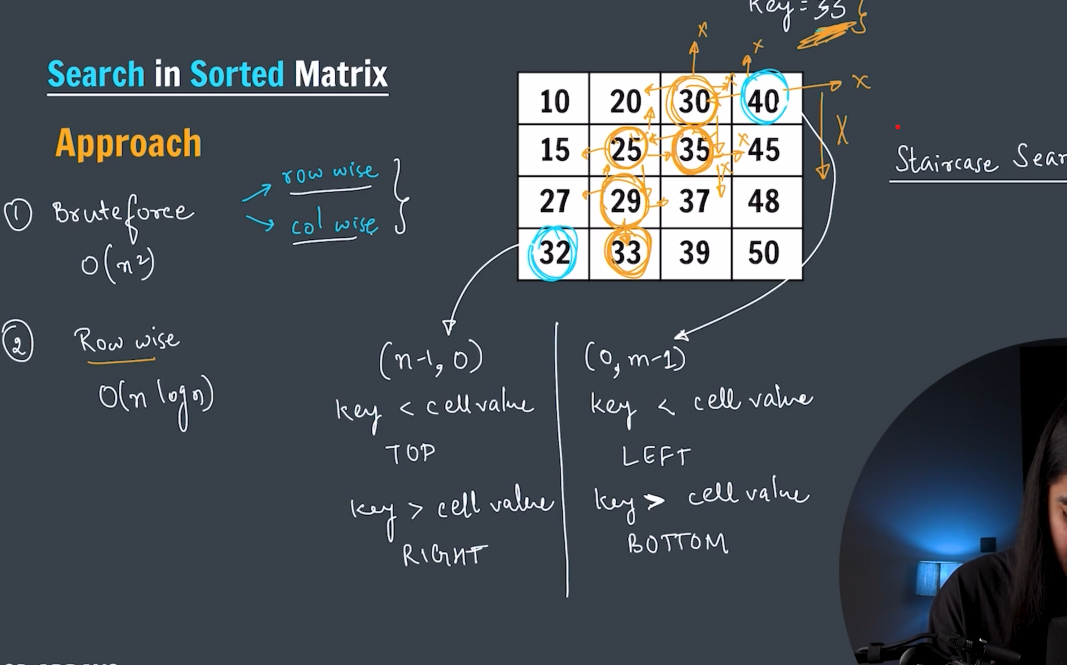 Key = 33
Search in Sorted Matrix
Approach
① Bruteforce
row wise
col wise
O(n²)
② Row wise
O(n log n)
10 20 30 40
15 25 35 45
27 29 37 48
32 33 39 50
Staircase Sear
(n-1, 0)
key < cell value
TOP
key > cell value
RIGHT
(0, m-1)
key < cell value
LEFT
key > cell value
BOTTOM